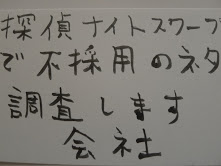 探偵ナイトスワープ
で不採用のネタ
調査します
会社